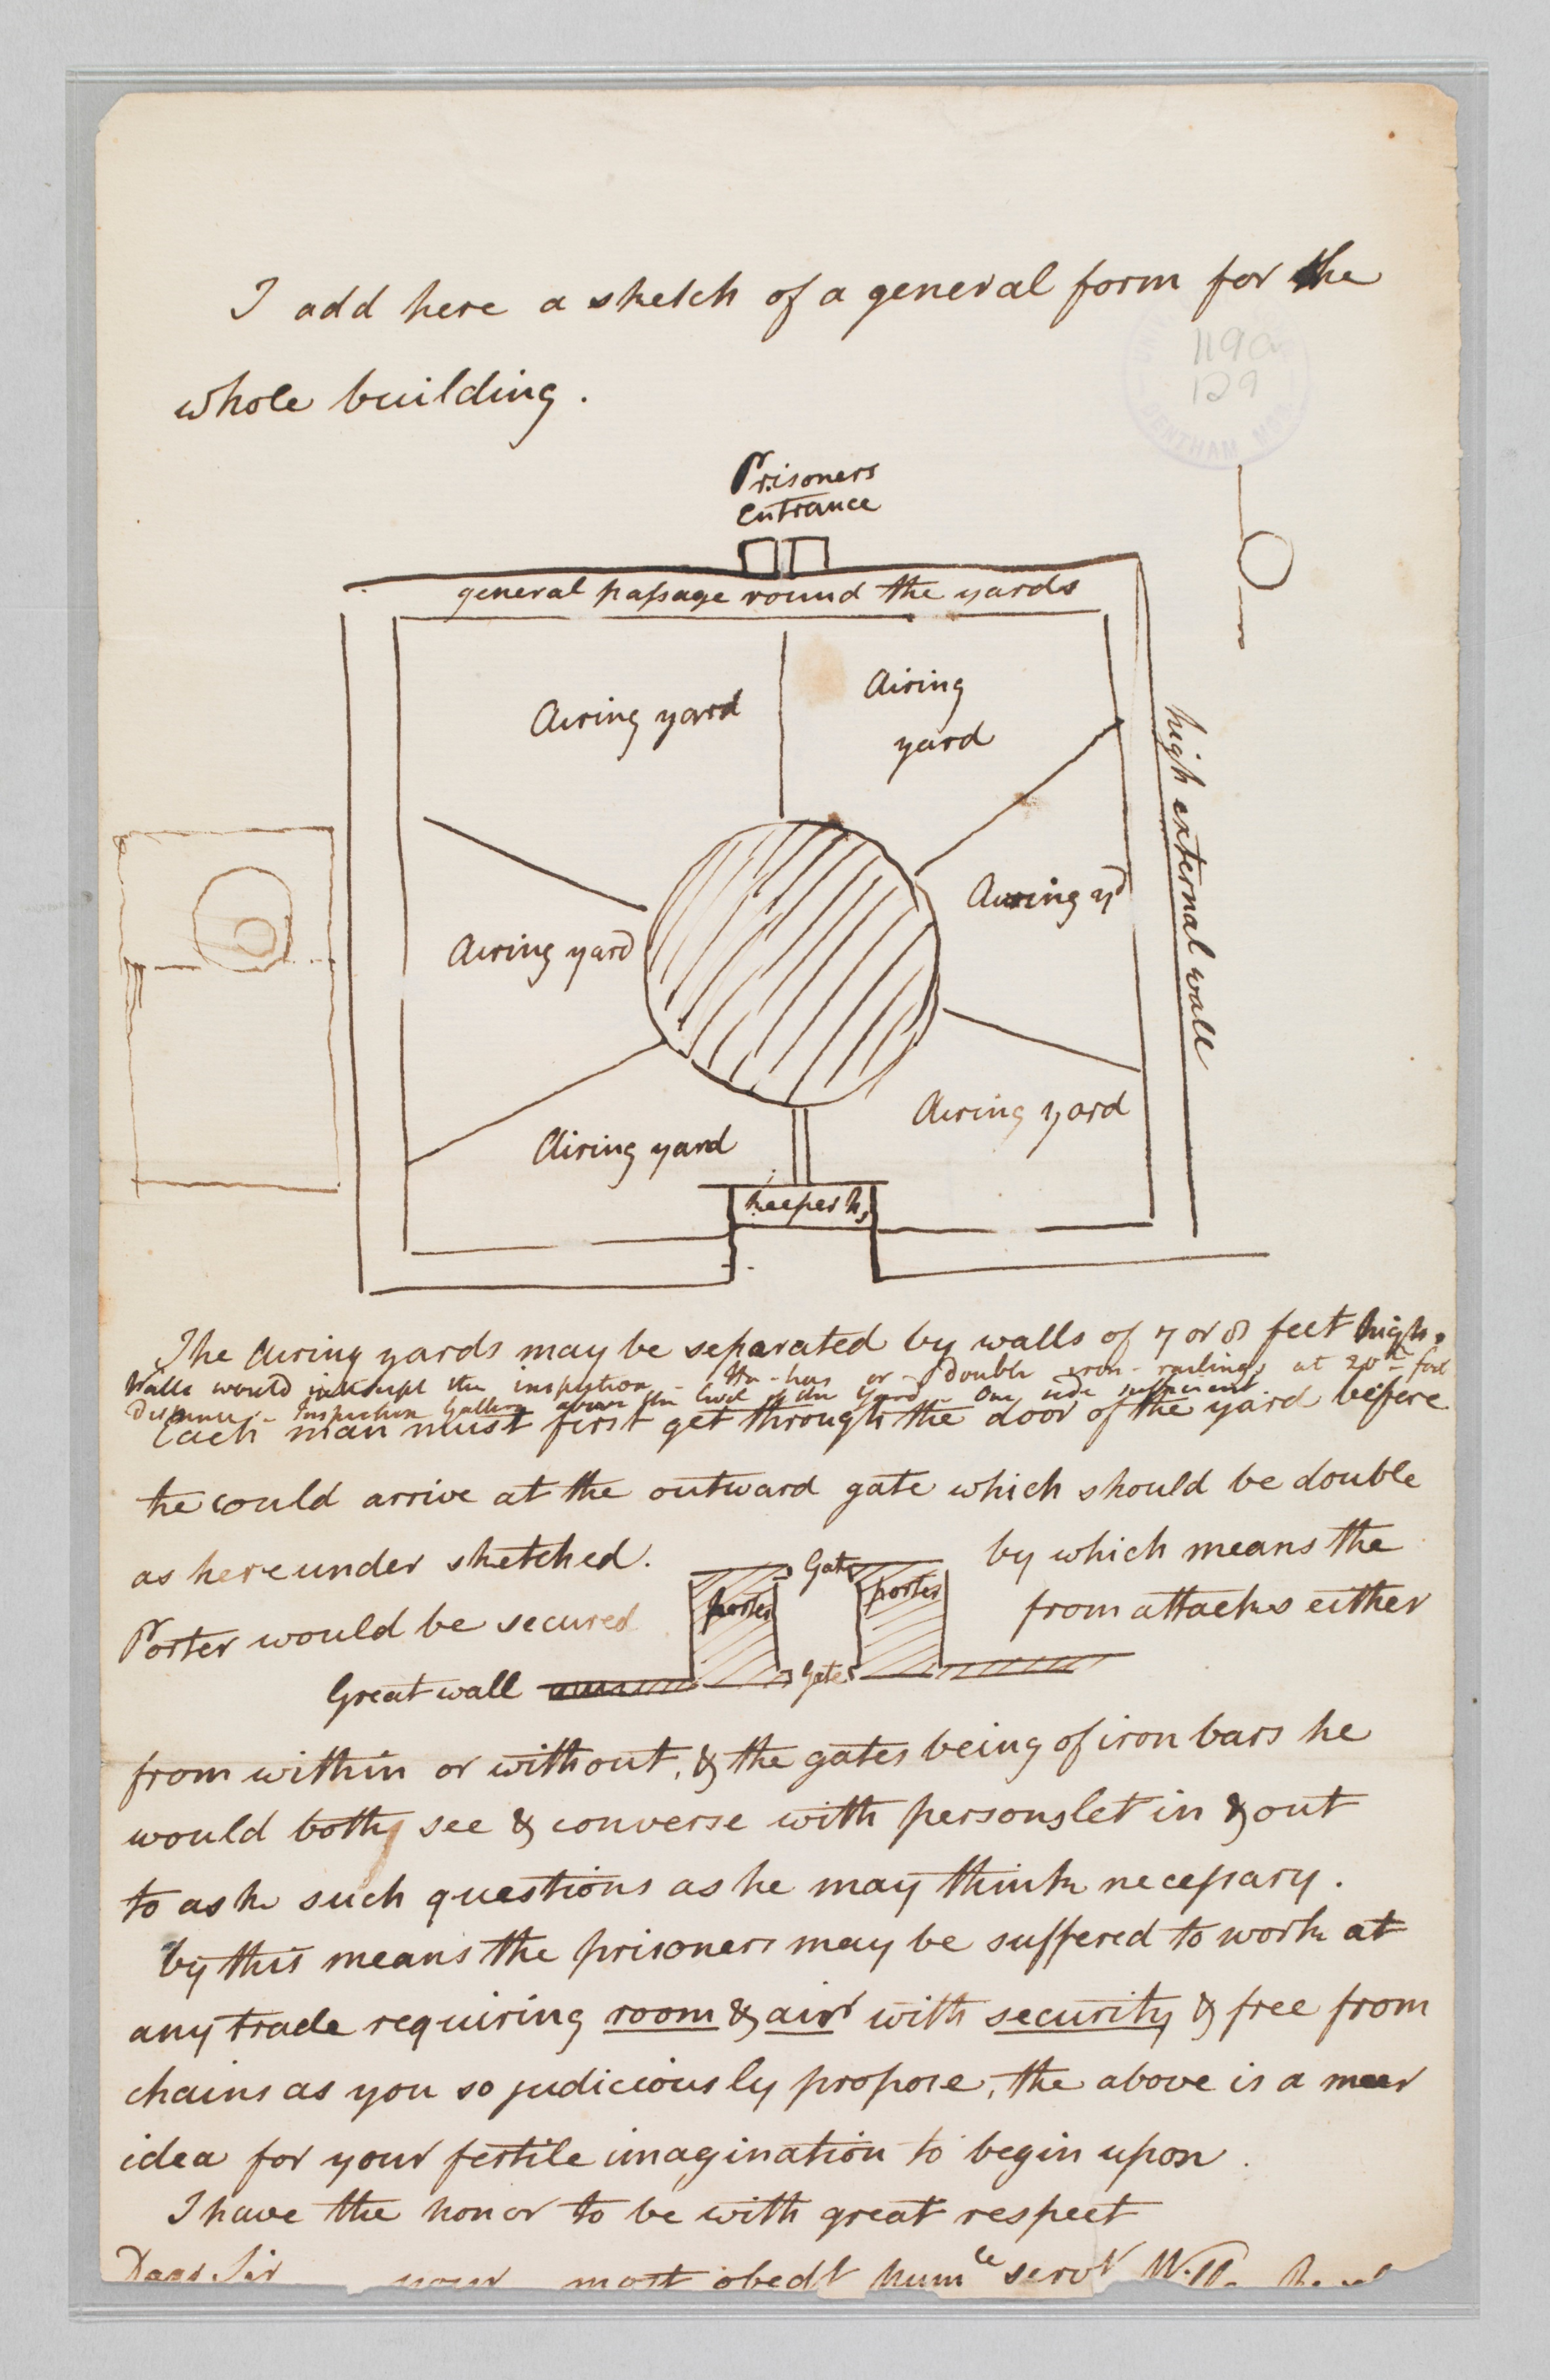 I add here a sketch of a general form for the
whole building.
119a
129
BENTHAM MSS
Prisoners
entrance
general passage round the yards
Airing yard
Airing
yard
high external wall
Airing yd
Airing yard
Airing yard
Airing yard
keepers hs
The Airing yards may be separated by walls of 7 or 8 feet high.
Walls would interrupt the inspection - Ha-has or double iron-railings at 20 foot
distance - Inspection Gallery above the level of the Yard - One side sufficient
Each man must first get through the door of the yard before
he could arrive at the outward gate which should be double
as hereunder sketched. by which means the
Gate
porter porter
Porter would be secured from attacks either
Great wall
Gate
from within or without, & the gates being of iron bars he
would both see & converse with persons let in & out
to ask such questions as he may think necessary.
by this means the prisoners may be suffered to work at
any trade requiring room & air with security & free from
chains as you so judiciously propose, the above is a meer
idea for your fertile imagination to begin upon.
I have the honor to be with great respect
Dear Sir your most obedt humle servt